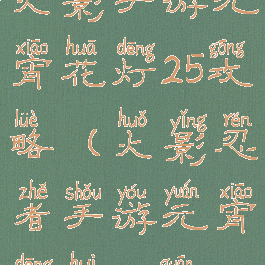 火影手游元
xiāo huā dēng gōng
宵花灯25攻
lüè huǒ yǐng rěn
略(火影忍
zhě shǒu yóu yuán xiāo
者手游元宵
dēng huì